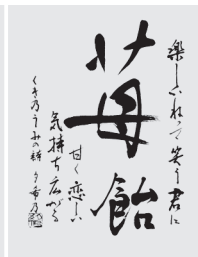 楽しいねって笑う君に
苺飴
甘く恋しい
気持ち広がる
くさ乃うみの詩 夕希乃